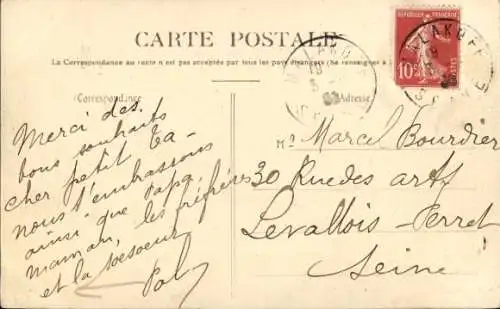 CARTE POSTALE
La Correspondance au recto n'est pas acceptée par tous les pays étrangers (Se renseigner à la
Correspondance
Adresse
REPUBLIQUE FRANÇAISE
10c
POSTES
MALAKOFF
MALAKOFF
Merci des
bons souhaits
cher petit
nous t'embrassons
ainsi que Papa,
maman, les
et la
Mr Marcel Bourdier
30 Rue des arts
Levallois-Perret
Seine